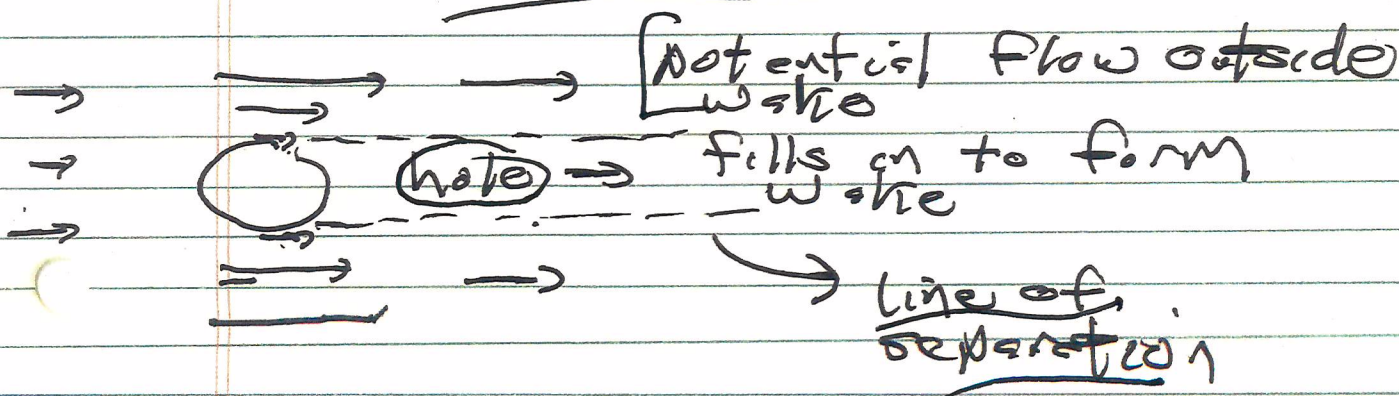 potential flow outside
wake
fills in to form
wake
hole
line of
separation